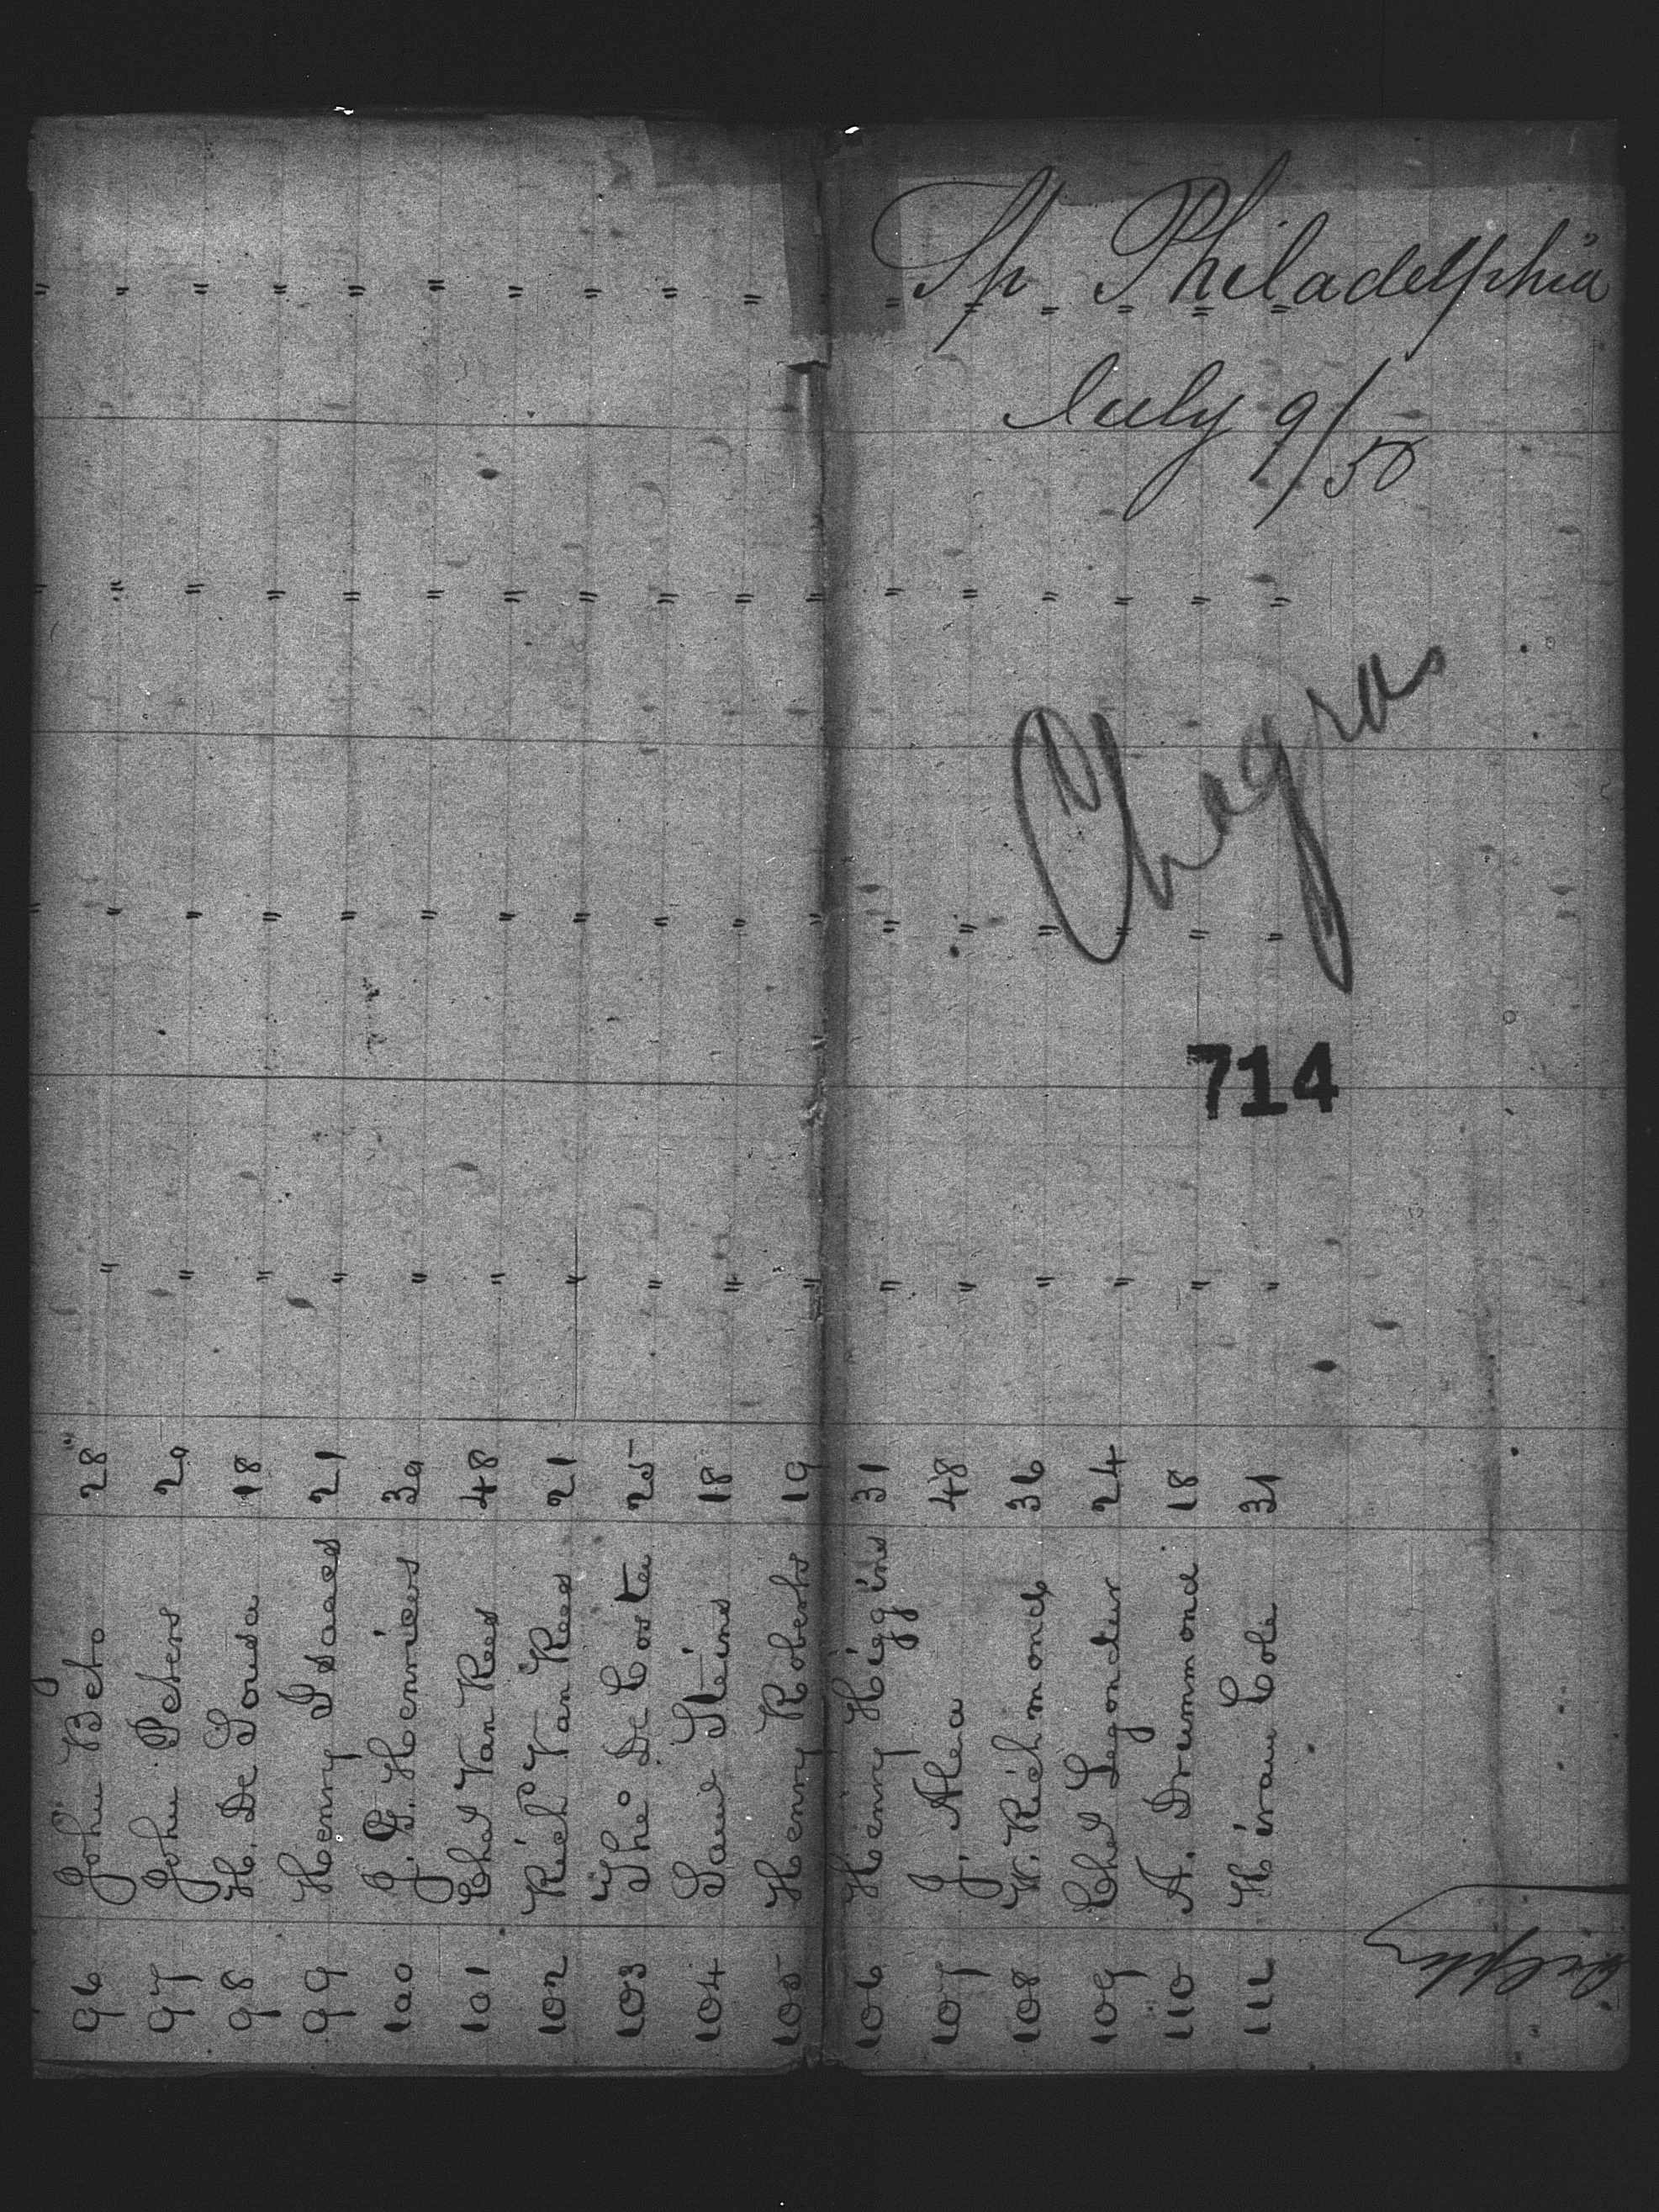 Sp Philadelphia
July 9/50
Chagras
714
96 John Beto 28 " " " "
97 John Peters 20 " " " "
98 H. De Sousa 18 " " " "
99 Henry Isaacs 21 " " " "
100 J. G. Henricus 30 " " " "
101 Chas Van Rees 48 " " " "
102 Richd Van Rees 21 " " " "
103 Theo De Costa 25 " " " "
104 Saul Steins 18 " " " "
105 Henry Roberts 19 " " " "
106 Henry Higgins 31 " " " "
107 J. Alea 48 " " " "
108 W. Richmond 36 " " " "
109 Chas Legonder 24 " " " "
110 A. Drummond 18 " " " "
111 Hiram Cole 31 " " " "